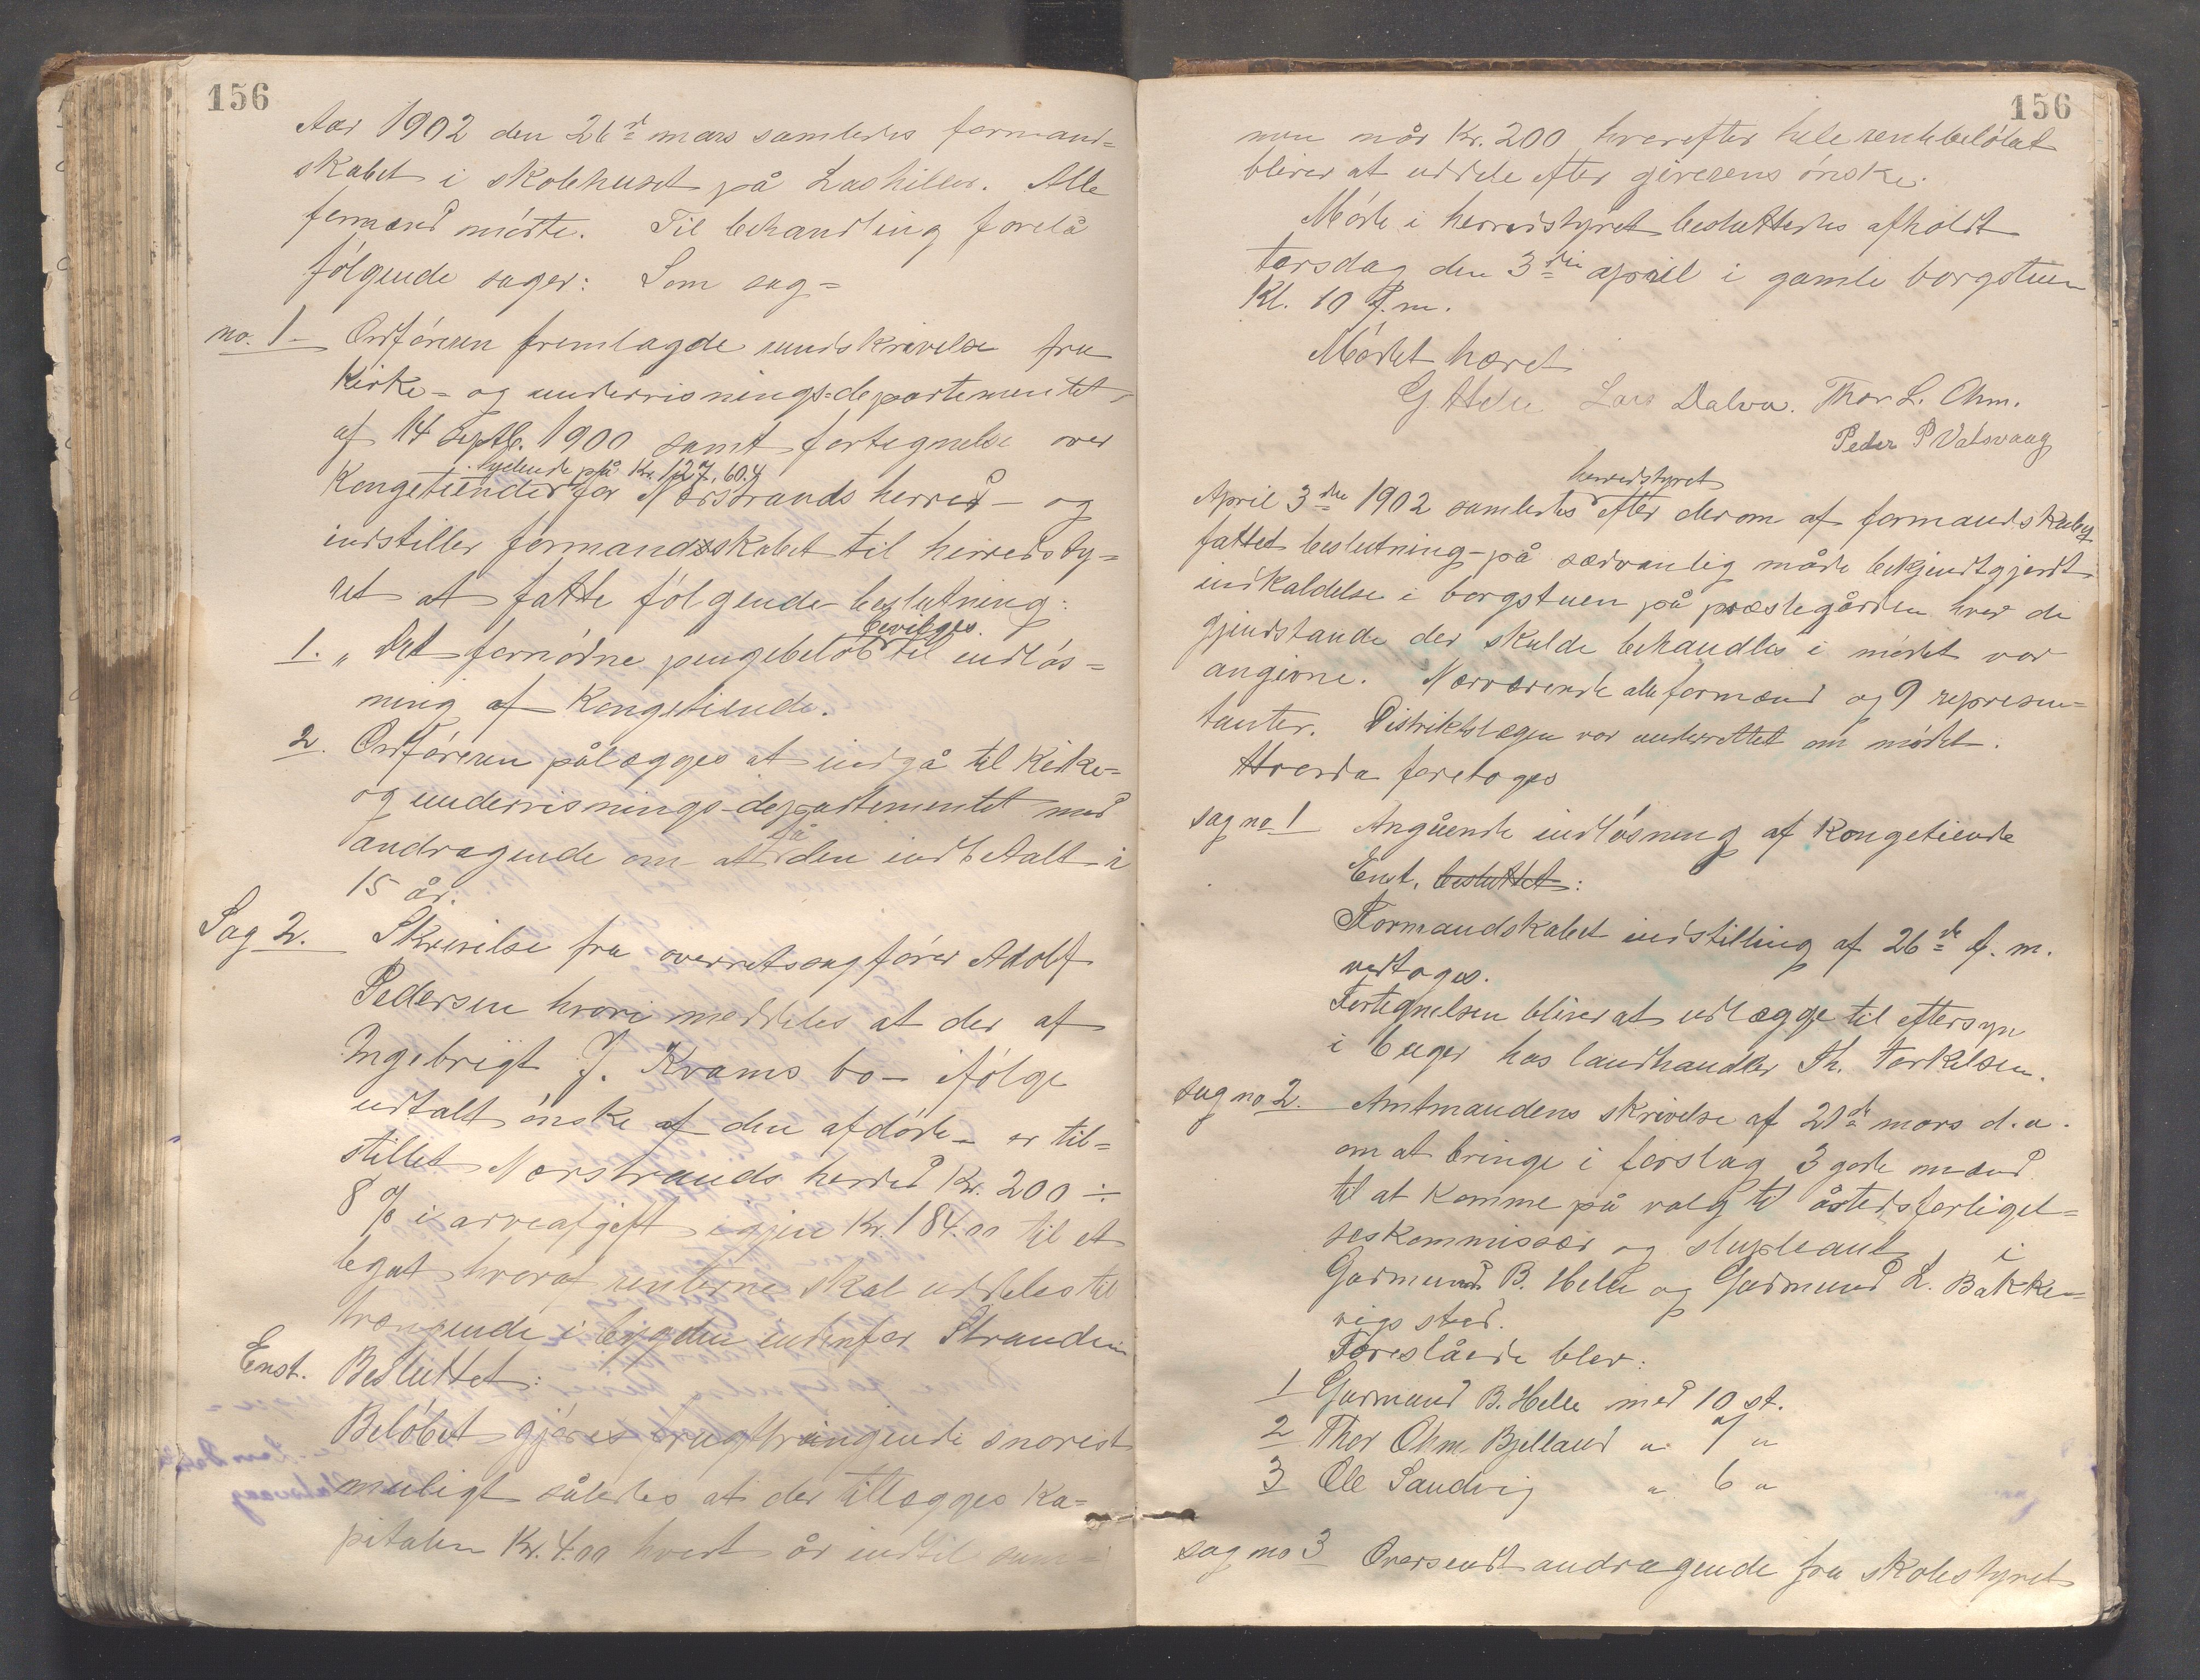 156
Aar 1902 den 26de mars samledes formand=
skabet i skolehuset på Lashiller. Alle
formænd mødte. Til behandling forelå
følgende sager: Som sag=
no. 1 – Ordføreren fremlagde rundskrivelse fra
Kirke= og undervisnings=departementet,
af 14 Septb. 1900 samt fortegnelse over
lydende på Kr. 127,60.4
Kongetiender for Nærstrands herred – og
indstiller formandsskabet til herredsty=
ret at fatte følgende beslutning:
bevilges.
1. „ Det fornødne pengebeløb til indløs=
ning af Kongetiende.
2. Ordføreren pålægges at indgå til Kirke=
og undervisnings-departementet med
få
andragende om at den indbetalt i
15 år.
Sag 2. Skrivelse fra overretssagfører Adolf
Pedersen hvori meddeles at der af
Ingebrigt J. Kvams bo – ifølge
udtalt ønske af den afdøde – er til=
stillet Nærstrands herred Kr. 200 ÷
8 % i arveafgift igjen Kr. 184.00 til et
legat hvoraf renterne skal uddeles til
trængende i bygden indenfor Stranden
Enst. Besluttet:
Beløbet gjøres frugtbringende snarest
muligt således at der tillægges Ka=
pitalen Kr. 4.00 hvert år indtil sum=
156
men når Kr. 200 hvorefter hele rentebeløbet
bliver at uddele efter giverens ønske.
Møde i herredstyret besluttedes afholdt
torsdag den 3die april i gamle borgstuen
Kl. 10 f.m.
Mødet hævet
G. Helle Lars Dalva. Thor L. Ohm.
Peder P Vatsvaag
herredstyret
April 3die 1902 samledes efter derom af formandskabet
fattet beslutning – på sædvanlig måde bekjendtgjordt
indkaldelse i borgstuen på præstegården hvor de
gjendstande der skulde behandles i mødet var
angivne. Nærværende alle formænd og 9 represen=
tanter. Distriktslægen var underrettet om mødet.
Hvorda foretoges
sag no 1 Angående indløsning af Kongetiende
Enst. besluttet:
Formandskabet indstilling af 26de f. m.
vedtoges.
Fortegnelsen bliver at udlægge til eftersyn
i 6 uger hos landhandler Th. Torkelsen.
sag no 2. Amtmandens skrivelse af 21de mars d.a.
om at bringe i forslag 3 gode mænd
til at komme på valg til åstedsforligel=
seskommissær og supleant, i
Gudmund B. Helle og Gudmund L. Bakke=
vigs sted.
Foreslåede blev:
1 Gudmund B. Helle med 10 st.
2 Thor Ohm Bjelland „ 7 „
3 Ole Sandvig „ 6 „
sag no 3 Oversendt andragende fra skolestyret